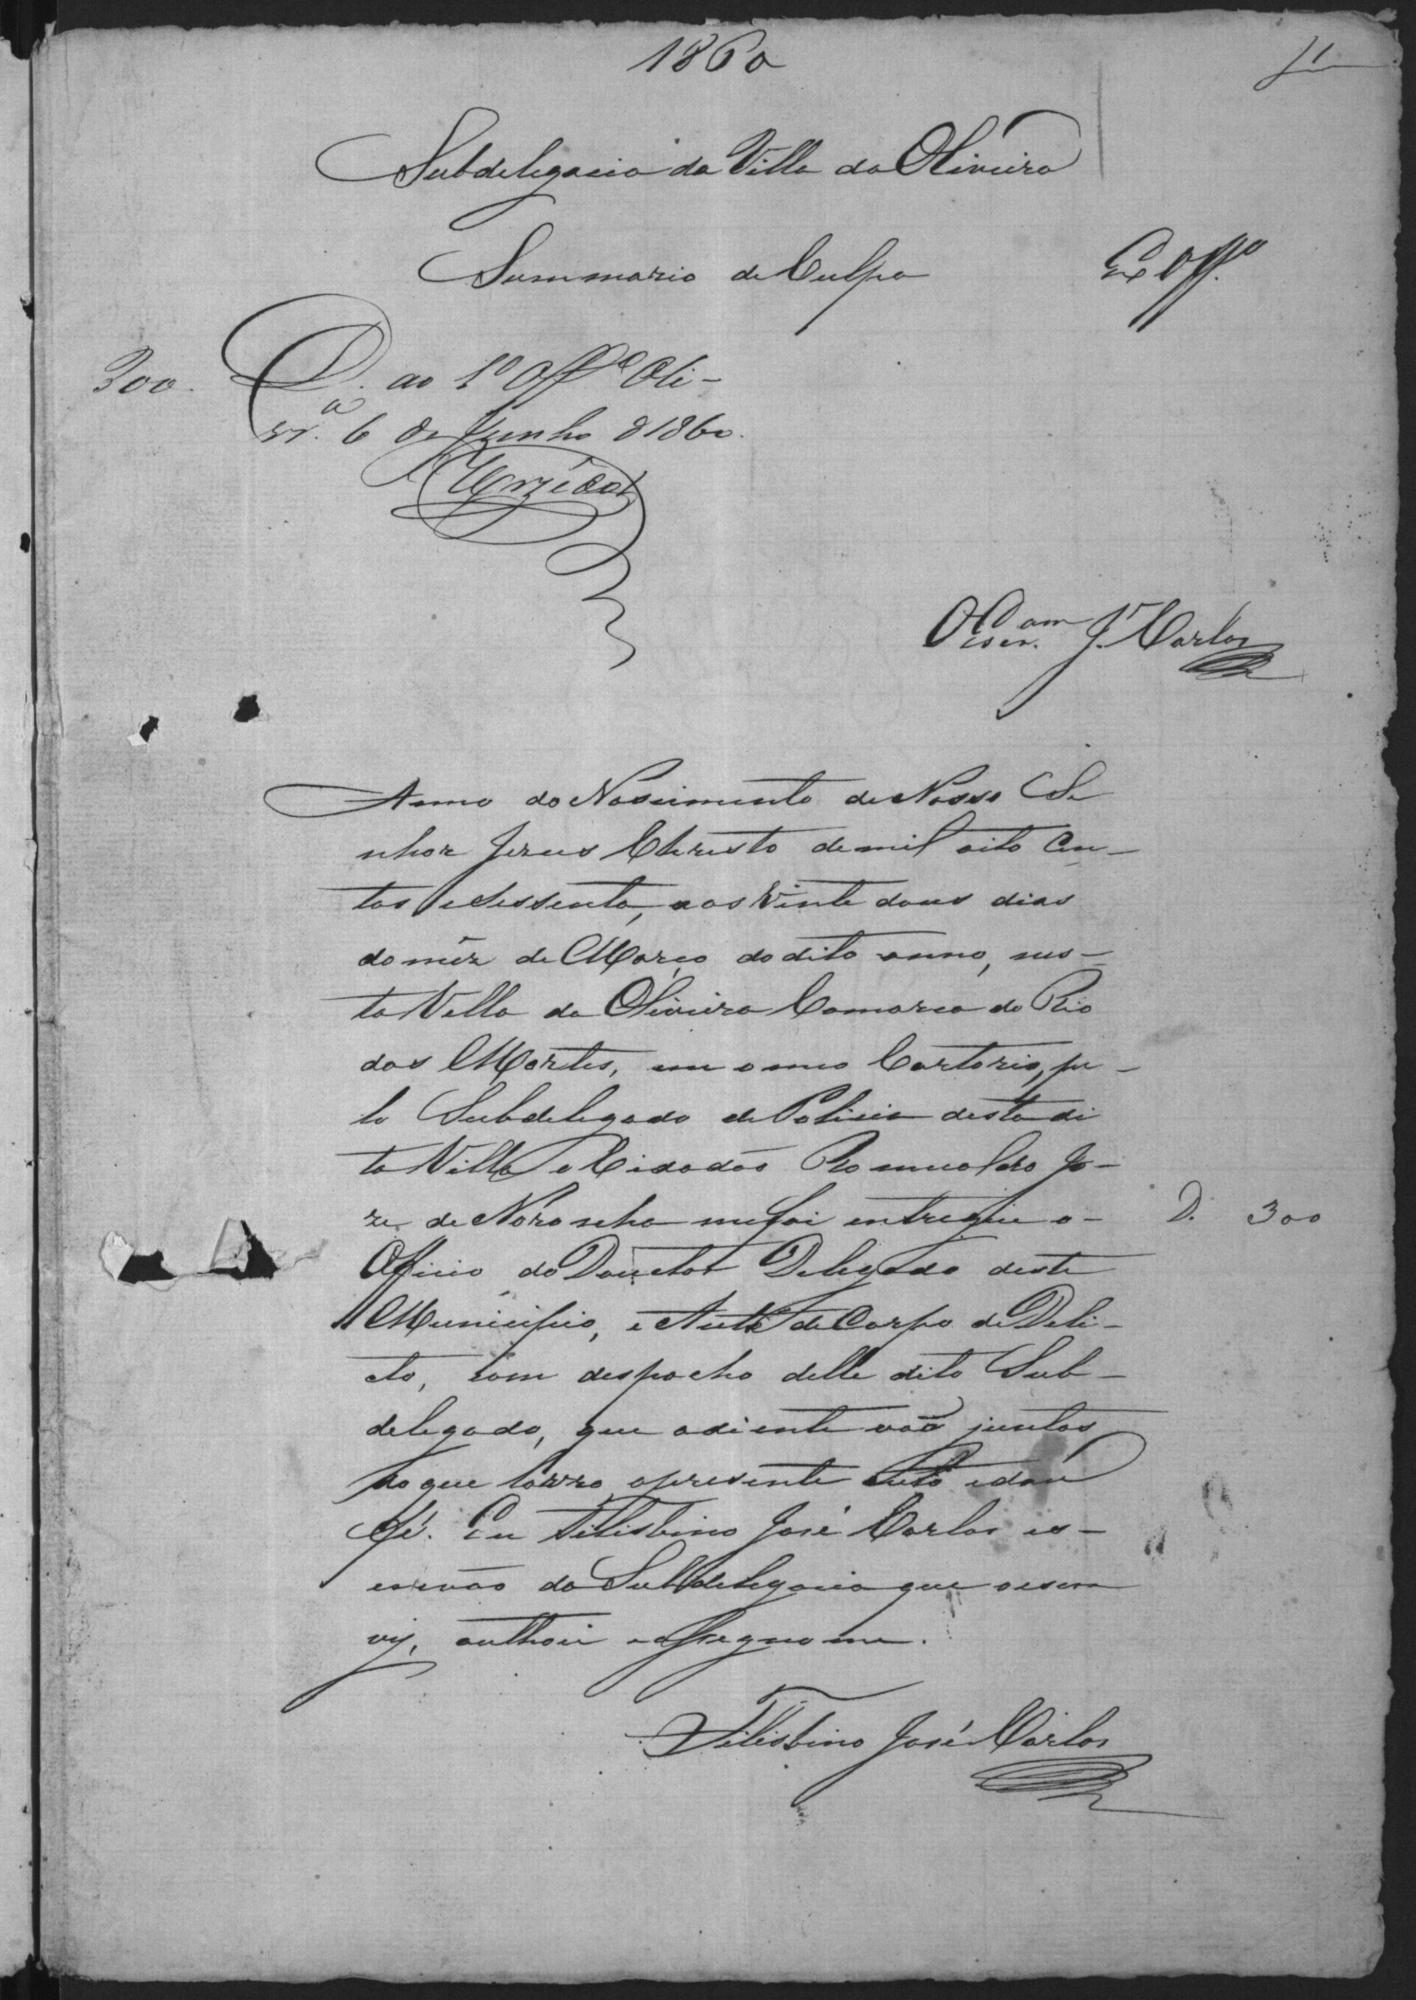 1860
Subdelegacia da Villa da Oliveira
Summario de Culpa
Ex Off.º
300. D. ao 1º Offº Oli-
vr.ª 6 de Junho d 1860.
O Escr.am J. Carlos
Anno do Nascimento de Nosso Se
nhor Jesus Christo de mil oito cen-
tos e sessenta, aos vinte dous dias
do mêz de Março do dito anno, nes-
ta Villa da Oliveira Comarca do Rio
das Mortes, em o meo Cartorio, pe-
lo Subdelegado de Policia desta di
ta Villa o Cidadão Romualdo Jo-
ze de Noronha me foi entregue o- D. 300
Officio do Douctor Delegado deste
Municipio, e Auto de Corpo de Deli-
cto, com despacho delle dito Sub-
delegado, que adiente vaõ juntos
do que lavro o presente auto e dou
fé. Eu Felisbino José Carlos es-
crivão da Subdelegacia que o escre
vy, authoei e assegno me.
Felisbino José Carlos